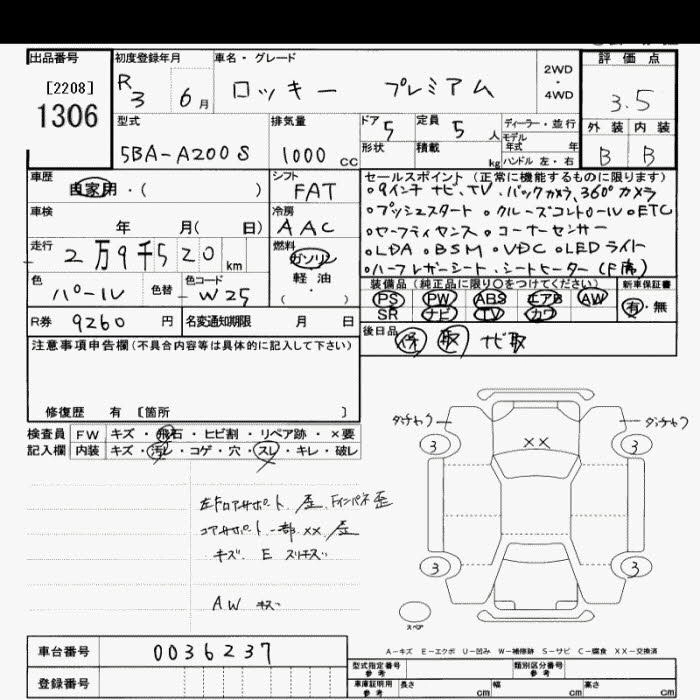 出品番号
[2208]
1306
初度登録年月
R3 6月
車名・グレード
ロッキー プレミアム
2WD
・
4WD
評価点
3.5
外装 内装
B B
型式
5BA-A200S
排気量
1000 cc
ドア 5
定員 5人
形状
積載 kg
ディーラー・並行
モデル
年式 年
ハンドル 左・右
車歴
自家用・( )
シフト
FAT
車検
年 月( 日)
冷房
AAC
走行
2万9千520 km
燃料
ガソリン
軽油
( ・ )
色
パール
色替
色コード
W25
R券 9260 円
名変通知期限 月 日
セールスポイント(正常に機能するものに限ります)
・9インチナビ、TV、バックカメラ、360°カメラ
・プッシュスタート ・クルーズコントロール ・ETC
・セーフティセンス ・コーナーセンサー
・LDA ・BSM ・VDC ・LEDライト
・ハーフレザーシート、シートヒーター(F席)
装備品(純正品に限り○をつけてください)
PS PW ABS エアB AW
SR ナビ TV カワ
新車保証書
有・無
後日品 保 取 ナビ取
注意事項申告欄(不具合内容等は具体的に記入して下さい)
修復歴 有 〔箇所 〕
検査員
記入欄
FW キズ・飛石・ヒビ割・リペア跡・×要
内装 キズ・汚レ・コゲ・穴・スレ・キレ・破レ
左Fロアサポート 歪 Fインパネ歪
コアサポート一部 XX 歪
キズ E スリキズ
AW キズ
3 3
XX
3 3
スペア
A−キズ E−エクボ U−凹み W−補修跡 S−サビ C−腐食 XX−交換済
車台番号 0036237
登録番号
型式指定番号
参考
類別区分番号
参考
車庫証明用
参考
長さ cm 幅 cm 高さ cm